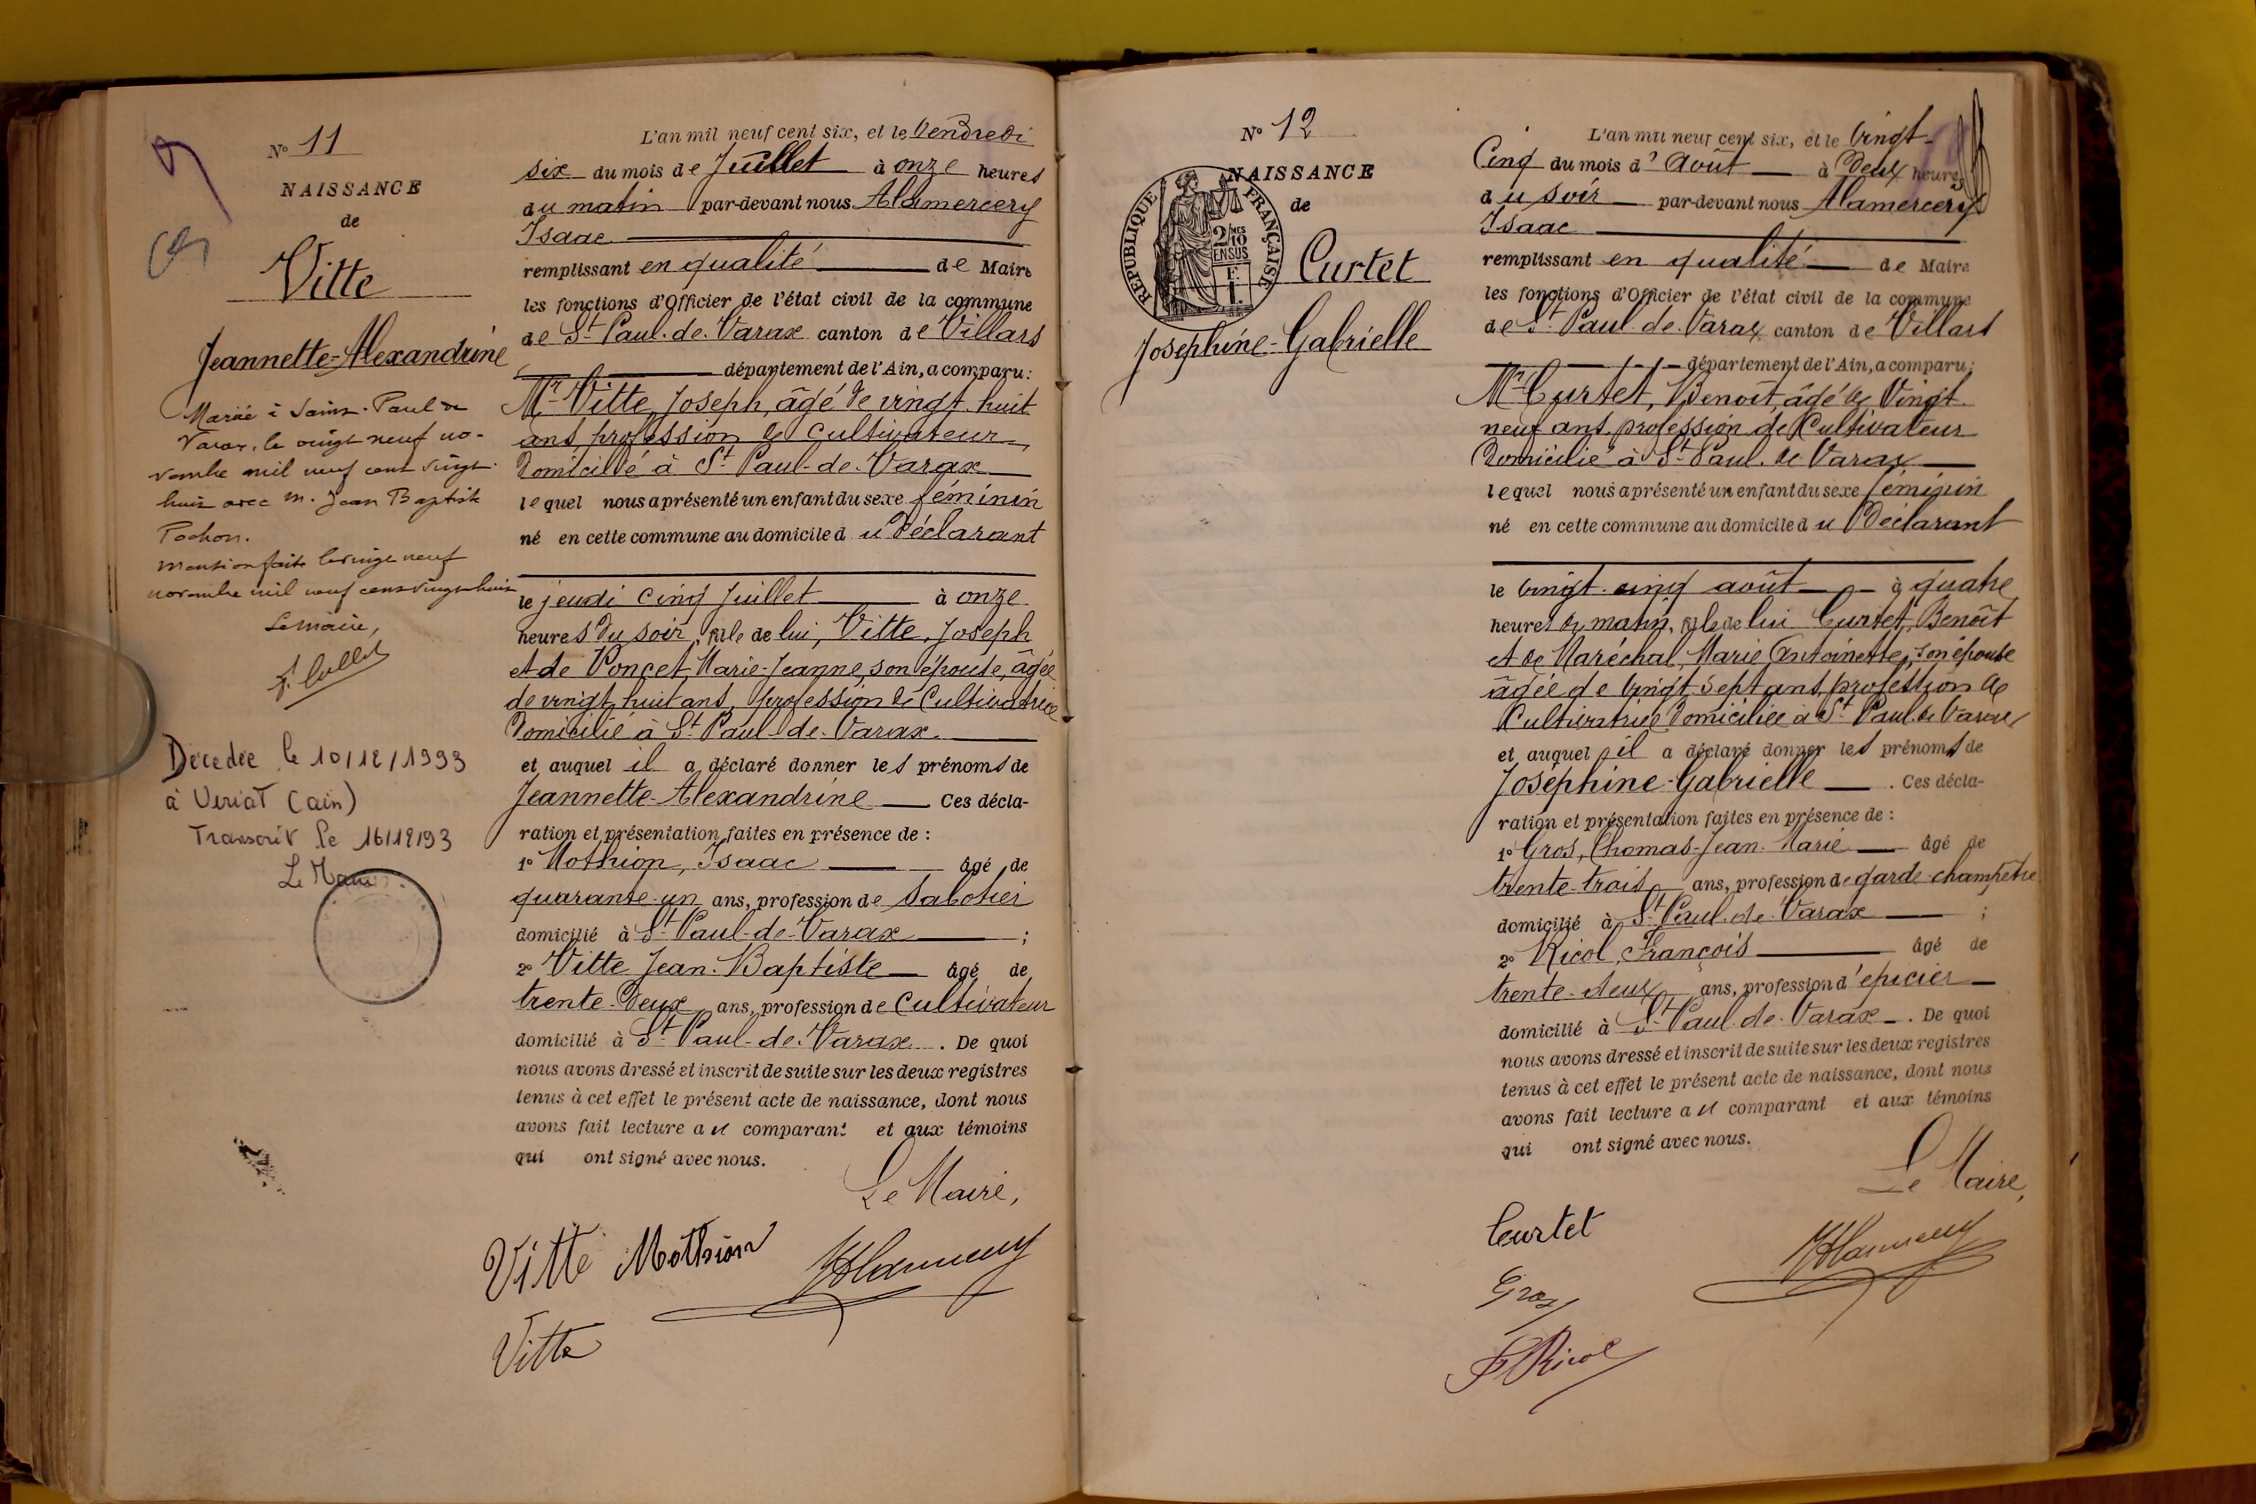 N° 11
NAISSANCE
de
Vitte
Jeannette-Alexandrine
Mariée à Saint-Paul de
Varax, le vingt neuf no-
vembre mil neuf cent vingt-
huit avec M. Jean Baptiste
Pochon.
Mention faite le vingt neuf
novembre mil neuf cent vingt huit
Le maire,
Décedée le 10/12/1993
à Viriat (ain)
Transcrit le 16/12/93
Le Maire.
L'an mil neuf cent six, et le Vendredi
six du mois de Juillet à onze heures
du matin par-devant nous Alamercery
Isaac
remplissant en qualité de Maire
les fonctions d'Officier de l'état civil de la commune
de St Paul-de-Varax canton de Villars
département de l'Ain, a comparu:
Mr Vitte, Joseph, âgé de vingt huit
ans, profession de cultivateur,
domicilié à St Paul-de-Varax
lequel nous a présenté un enfant du sexe féminin
né en cette commune au domicile du déclarant
le jeudi cinq Juillet à onze
heures du soir, fille de lui, Vitte, Joseph
et de Poncet, Marie-Jeanne, son épouse, âgée
de vingt huit ans, profession de Cultivatrice
domicilié à St Paul-de-Varax.
et auquel il a déclaré donner les prénoms de
Jeannette-Alexandrine Ces décla-
ration et présentation faites en présence de :
1° Mothion, Isaac âgé de
quarante-un ans, profession de sabotier
domicilié à St Paul-de-Varax ;
2° Vitte Jean-Baptiste âgé de
trente-deux ans, profession de Cultivateur
domicilié à St Paul-de-Varax. De quoi
nous avons dressé et inscrit de suite sur les deux registres
tenus à cet effet le présent acte de naissance, dont nous
avons fait lecture au comparant et aux témoins
qui ont signé avec nous.
Le Maire,
Vitte Mothion
Vitte
N° 12
NAISSANCE
de
RÉPUBLIQUE FRANÇAISE
2/10
EN SUS
Curtet
Joséphine-Gabrielle
L'an mil neuf cent six, et le Vingt-
Cinq du mois d'Août à Deux heures
du soir par-devant nous Alamercery
Isaac
remplissant en qualité de Maire
les fonctions d'Officier de l'état civil de la commune
de St Paul-de-Varax canton de Villars
département de l'Ain, a comparu:
Mr Curtet, Benoît, âgé de Vingt-
neuf ans, profession de Cultivateur
domicilié à St Paul-de Varax
lequel nous a présenté un enfant du sexe féminin
né en cette commune au domicile du Déclarant
le vingt-cinq août à quatre
heures du matin, fille de lui Curtet, Benoît
et de Maréchal, Marie Antoinette, son épouse
âgée de vingt-sept ans, profession de
Cultivatrice domiciliée à St Paul de Varax
et auquel il a déclaré donner les prénoms de
Joséphine-Gabrielle . Ces décla-
ration et présentation faites en présence de :
1° Gros, Thomas-Jean-Marie âgé de
trente-trois ans, profession de garde-champêtre
domicilié à St Paul-de-Varax ;
2° Ricol, François âgé de
trente-deux ans, profession d'épicier
domicilié à St Paul-de-Varax . De quoi
nous avons dressé et inscrit de suite sur les deux registres
tenus à cet effet le présent acte de naissance, dont nous
avons fait lecture au comparant et aux témoins
qui ont signé avec nous.
Le Maire,
Curtet
Gros
F Ricol